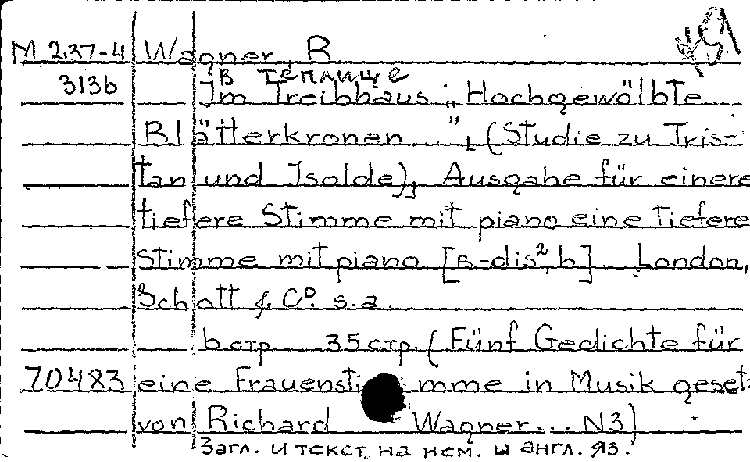 М 237-4 Wagner, R
313b В теплице
Im Treibhaus: „Hochgewölbte
Blätterkronen...", (Studie zu Tris-
tan und Isolde), Ausgabe für einere
tiefere Stimme mit piano eine Tiefere
Stimme mit piano [B-dis² b] London,
Schott & Cº. s.a.
b стр 35 стр (Fünf Gedichte für
70483 eine Frauenstimme in Musik geset
von Richard Wagner... N3)
Загл. и текст на нем. и англ. яз.